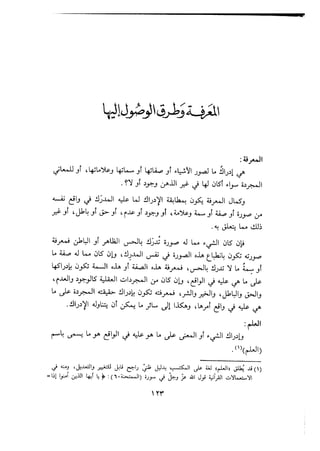 المعرفة وطرق الوصول إليها
المعرفة:
هي إدراك ما لصور الأشياء أو صفاتها أو سماتها وعلاماتها، أو للمعاني
المجردة سواء أكان لها في غير الذهن وجود أو لا؟.
وكمال المعرفة يكون بمطابقة الإدراك لما عليه المدرك في واقع نفسه
من صورة أو صفة أو سمة وعلامة، أو وجود أو عدم، أو حق أو باطل، أو غير
ذلك مما يتعلق به.
فإن كان الشيء مما له صورة تدرك بالحس الظاهر أو الباطن فمعرفة
صورته تكون بانطباع هذه الصورة في نفس المدرك، وإن كان مما له صفة ما
أو سمة ما لا تدرك بالحس، فمعرفة هذه الصفة أو هذه السمة تكون بإدراكها
على ما هي عليه في الواقع، وإن كان من المدركات العقلية كالوجود والعدم،
والحق والباطل، والخير والشر، فمعرفته تكون بإدراك حقيقته المجردة على ما
هي عليه في واقع أمرها، وهكذا إلى سائر ما يمكن أن يتناوله الإدراك.
العلم:
وإدراك الشيء أو المعنى على ما هو عليه في الواقع هو ما يسمى باسم
(العلم)(١).
(١) قد يطلق «العلم» لغة على المكتسب بدليل ظني راجح قابل للتغيير والتعديل، ومنه في
الاستعمالات القرآنية قول الله عز وجل في سورة (الممتحنة-٦٠): ﴿يا أيها الذين آمنوا إذا=
١٢٣